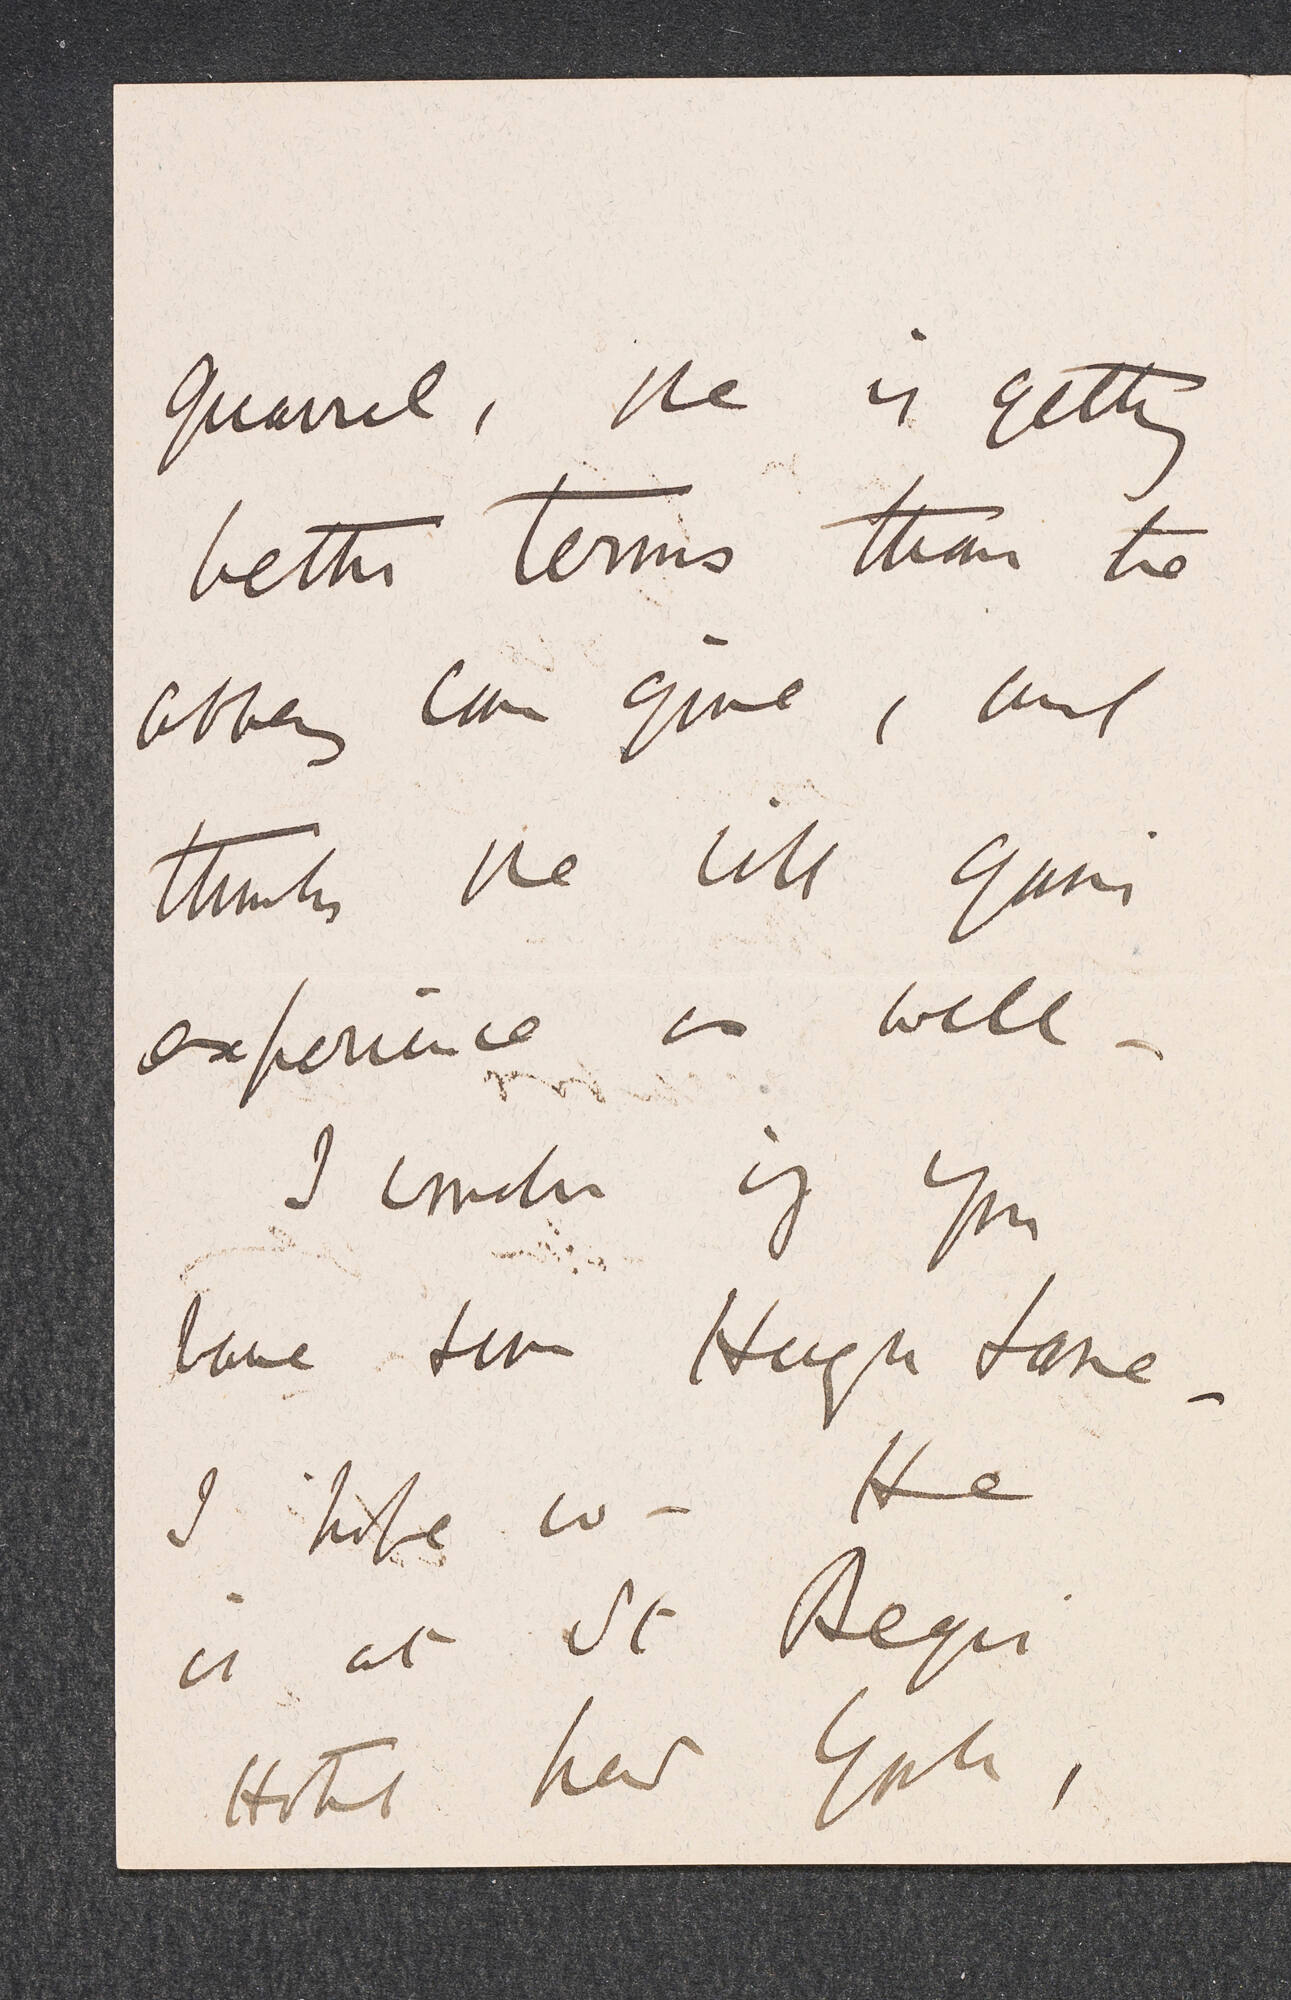 quarrel, he is getting
better terms than the
abbey can give, and
thinks he will gain
experience as well -
I wonder if you
have seen Hugh Lane -
I hope so - He
is at St Regis
Hotel New York,